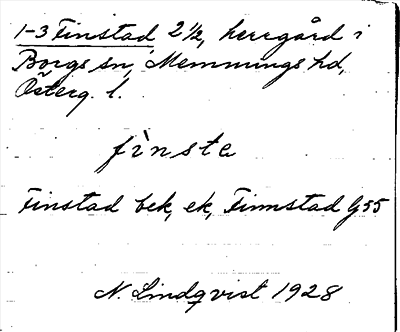 1-3 Finstad 2 1/2, herrgård i
Borgs sn, Memmings hd,
Österg. l.
fìnsta
Finstad bek, ek, Finnstad G 55
N. Lindqvist 1928